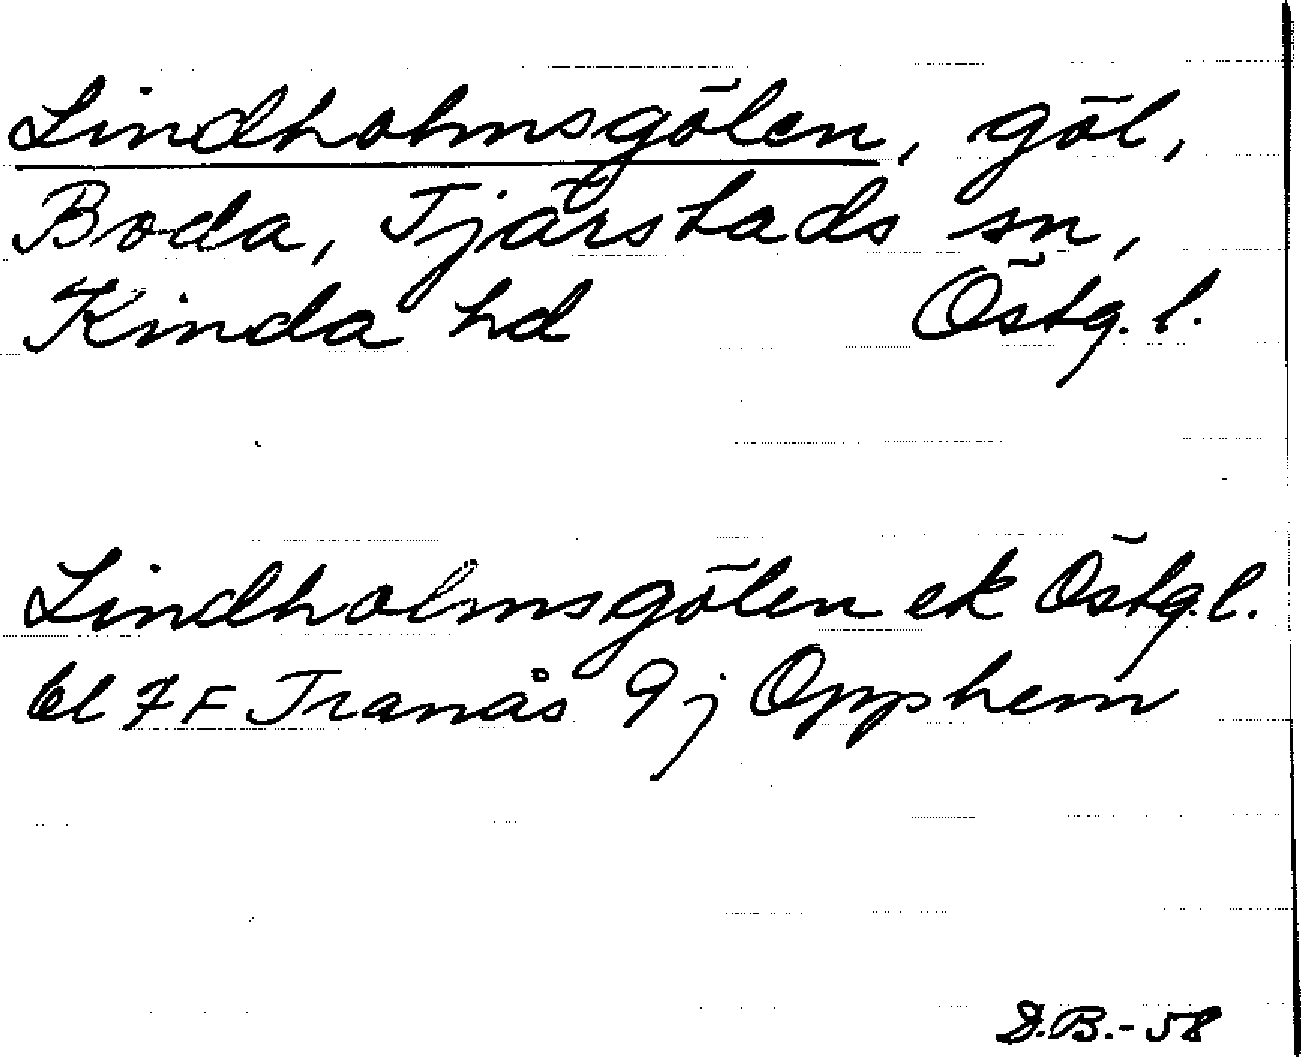 Lindholmsgölen, göl,
Boda, Tjärstads sn,
Kinda hd Östg. l.
Lindholmsgölen ek Östg. l.
bl 7 F Tranås 9 j Opphem
D.B.-58